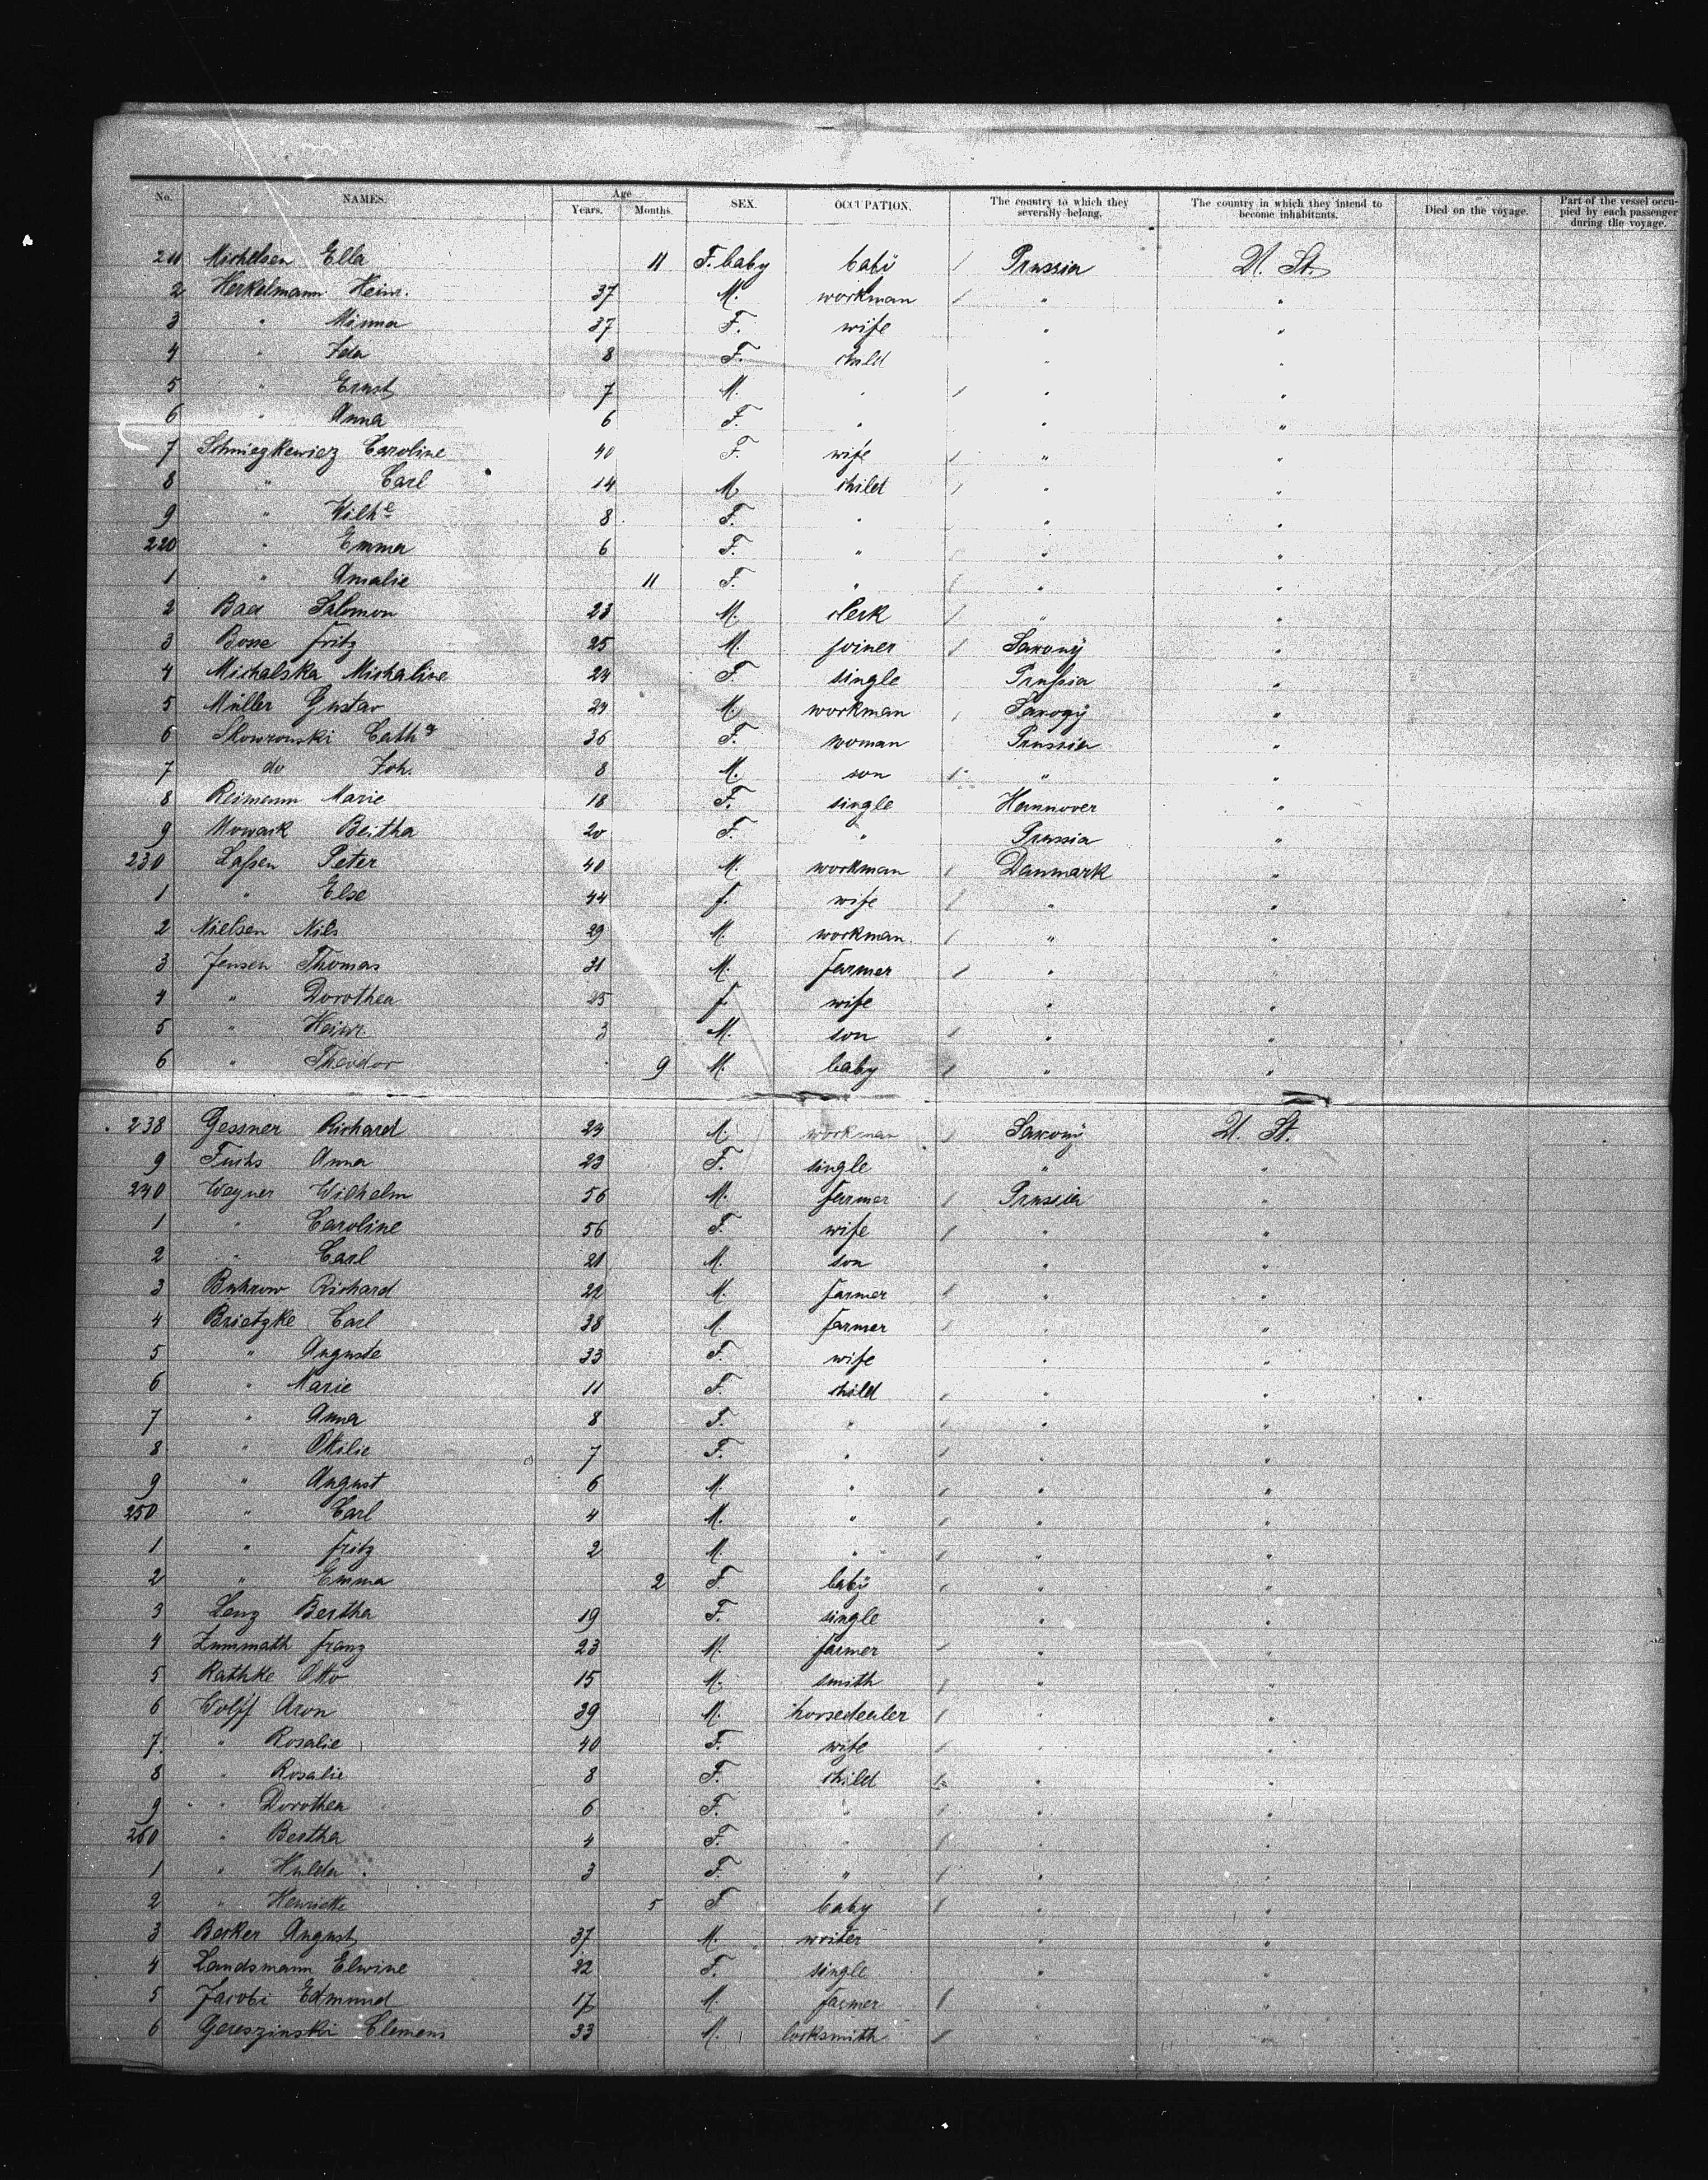 No. NAMES. Age Years. Months. SEX. OCCUPATION. The country to which they severally belong. The country in which they intend to become inhabitants. Died on the voyage. Part of the vessel occupied by each passenger during the voyage.
211 Michelsen Ella 11 F. baby baby Prussia U. St.
2 Herkelmann Heinr. 37 M. workman " "
3 " Minna 37 F. wife " "
4 " Ida 8 F. child " "
5 " Ernst 7 M. " " "
6 " Anna 6 F. " " "
7 Schmiezkewiez Caroline 40 F. wife " "
8 " Carl 14 M. child " "
9 " Wilhe 8 F. " " "
220 " Emma 6 F. " " "
1 " Amalie 11 F. " " "
2 Bad Salomon 23 M. clerk " "
3 Bosse Fritz 25 M. joiner Saxony "
4 Michalska Michaline 24 F. single Prussia "
5 Müller Gustav 24 M. workman Saxony "
6 Skowronski Cath 36 F. woman Prussia "
7 do Joh. 8 M. son " "
8 Reimann Marie 18 F. single Hannover "
9 Nowack Bertha 20 F. " Prussia "
230 Lassen Peter 40 M. workman Danmark "
1 " Else 44 f. wife " "
2 Nielsen Nils 29 M. workman " "
3 Jensen Thomas 31 M. farmer "
4 " Dorothea 25 f. wife " "
5 " Heinr. 3 M. son " "
6 " Theodor 9 M. baby " "
238 Gessner Richard 24 M. workman Saxony U. St.
9 Fuchs Anna 23 F. single " "
240 Wegner Wilhelm 56 M. farmer Prussia "
1 " Caroline 56 F. wife " "
2 " Carl 21 M. son " "
3 Buhrow Richard 22 M. farmer " "
4 Brietzke Carl 38 M. farmer " "
5 " Auguste 33 F. wife " "
6 " Marie 11 F. child " "
7 " Anna 8 F. " " "
8 " Ottilie 7 F. " " "
9 " August 6 M. " " "
250 " Carl 4 M. " " "
1 " Fritz 2 M. " " "
2 " Emma 2 F. baby " "
3 Lenz Bertha 19 F. single " "
4 Zummath Franz 23 M. farmer " "
5 Rathke Otto 15 M. smith " "
6 Wolff Aron 39 M. horsedealer " "
7 " Rosalie 40 F. wife " "
8 " Rosalie 8 F. child " "
9 " Dorothea 6 F. " " "
260 " Bertha 4 F. " " "
1 " Hulda 3 F. " " "
2 " Henriette 5 F baby " "
3 Becker August 37 M. writer " "
4 Landsmann Elwine 22 F. single " "
5 Jacobi Edmund 17 M. farmer " "
6 Gereszinski Clemens 33 M. locksmith " "